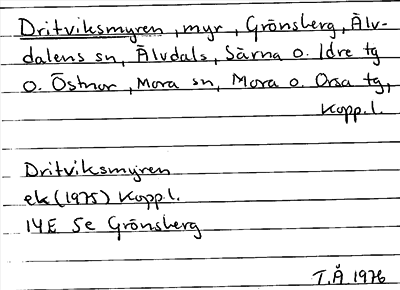 Dritviksmyren, myr, Grönsberg, Älv-
dalens sn, Älvdals, Särna o. Idre tg
o. Östnor, Mora sn, Mora o. Orsa tg,
Kopp.l.
Dritviksmyren
ek (1975) Kopp.l.
14E 5e Grönsberg
T.Å 1976